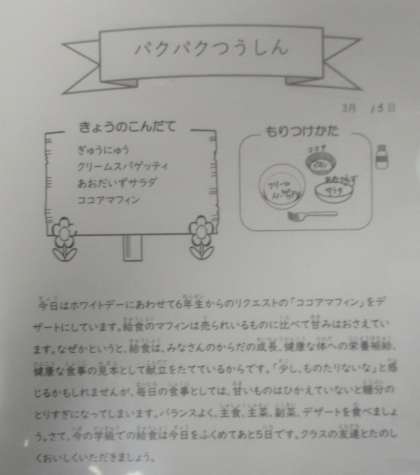 パクパクつうしん
3月 13日
きょうのこんだて
ぎゅうにゅう
クリームスパゲッティ
あおだいずサラダ
ココアマフィン
もりつけかた
ココア
クリーム
サラダ
今日はホワイトデーにあわせて6年生からのリクエストの「ココアマフィン」をデ
ザートにしています。給食のマフィンは売られているものに比べて甘みはおさえてい
ます。なぜかというと、給食は、みなさんのからだの成長、健康な体への栄養補給、
健康な食事の見本として献立をたてているからです。「少し、ものたりないな」と感
じるかもしれませんが、毎日の食事としては、甘いものはひかえていないと糖分の
とりすぎになってしまいます。バランスよく、主食、主菜、副菜、デザートを食べましょ
う。さて、今の学級での給食は今日をふくめてあと5日です。クラスの友達とたのし
くおいしくいただきましょう。